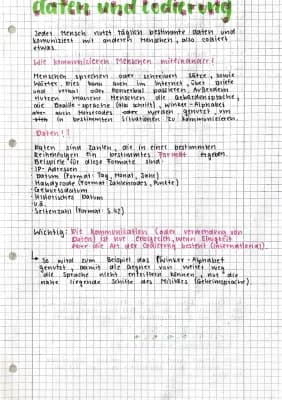 Daten und Codierung
Jeder Mensch nutzt täglich bestimmte daten und
kommuniziert mit anderen Menschen, also codiert
etwas.
Wie kommunizieren Menschen miteinander?
Menschen sprechen oder schreiben Sätze, sowie
Wörter. Dies kann auch im Internet, über Briefe
und verbal oder nonverbal passieren. Außerdem
nutzen manche Menschen die Gebärdensprache,
die Braille-Sprache (als Schrift), Winker-Alphabet
aber auch Morsecodes oder werden genutzt, um
in bestimmten Situationen zu kommunizieren.
Daten!?
Daten sind Zahlen, die in einer bestimmten
Reihenfolgen ein bestimmtes Format ergeben.
Beispiele für diese Formate sind:
IP-Adressen
Datum (Format: Tag, Monat, Jahr)
Handycode (Format Zahlencodes, Punkte)
Geburtsdatum
Historisches Datum
u.a.
Seitenzahl (Format: S.42)
Wichtig: Die Kommunikation (oder verwendung von
Daten) ist nur erfolgreich, wenn Einigkeit
über die Art der Codierung besteht (international).
So wird zum Beispiel das Winker-Alphabet
genutzt, damit die Gegner von weitet weg
die Sprache nicht entziffern können, nur die
nahe liegende Schiffe des Militärs (Geheimsprache).